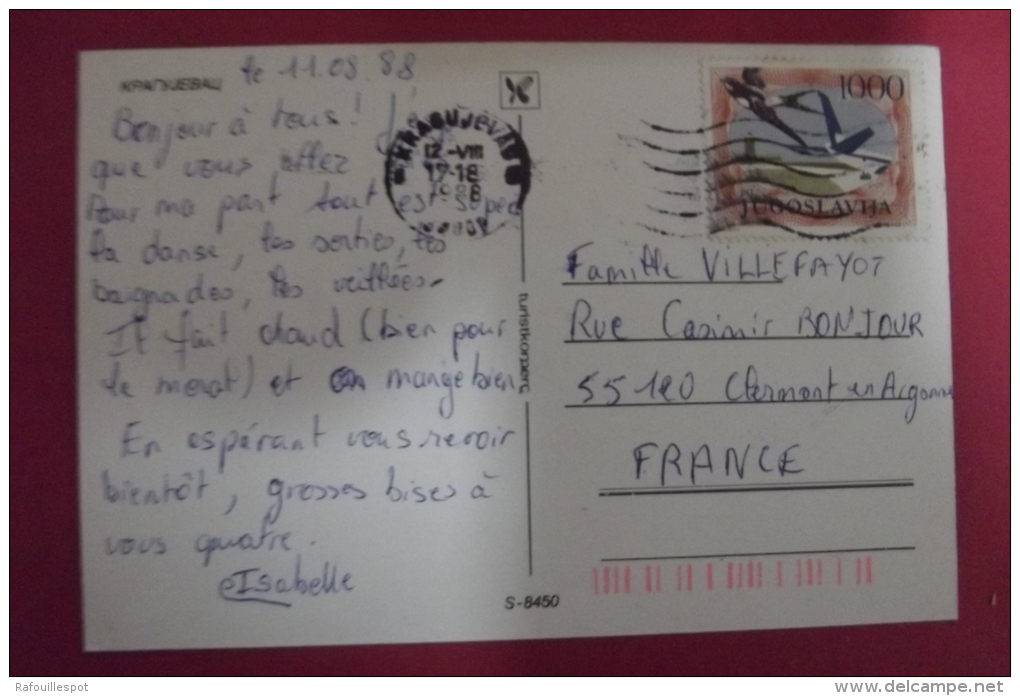 КРАГУЈЕВАЦ
le 11.08.88
Bonjour à tous!
que vous allez
Pour ma part tout est super
la danse, les sorties, les
baignades, les veillées.
Il fait chaud (bien pour
le moral) et on mange bien
En espérant vous revoir
bientôt, grosses bises à
vous quatre.
Isabelle
KRAGUJEVAC
12-VIII
17-18
1988
1000
JUGOSLAVIJA
Famille VILLEFAYOT
Rue Casimir BONJOUR
55120 Clermont en Argonne
FRANCE
turistkomerc
S-8450
Rafouillespot
www.delcampe.net